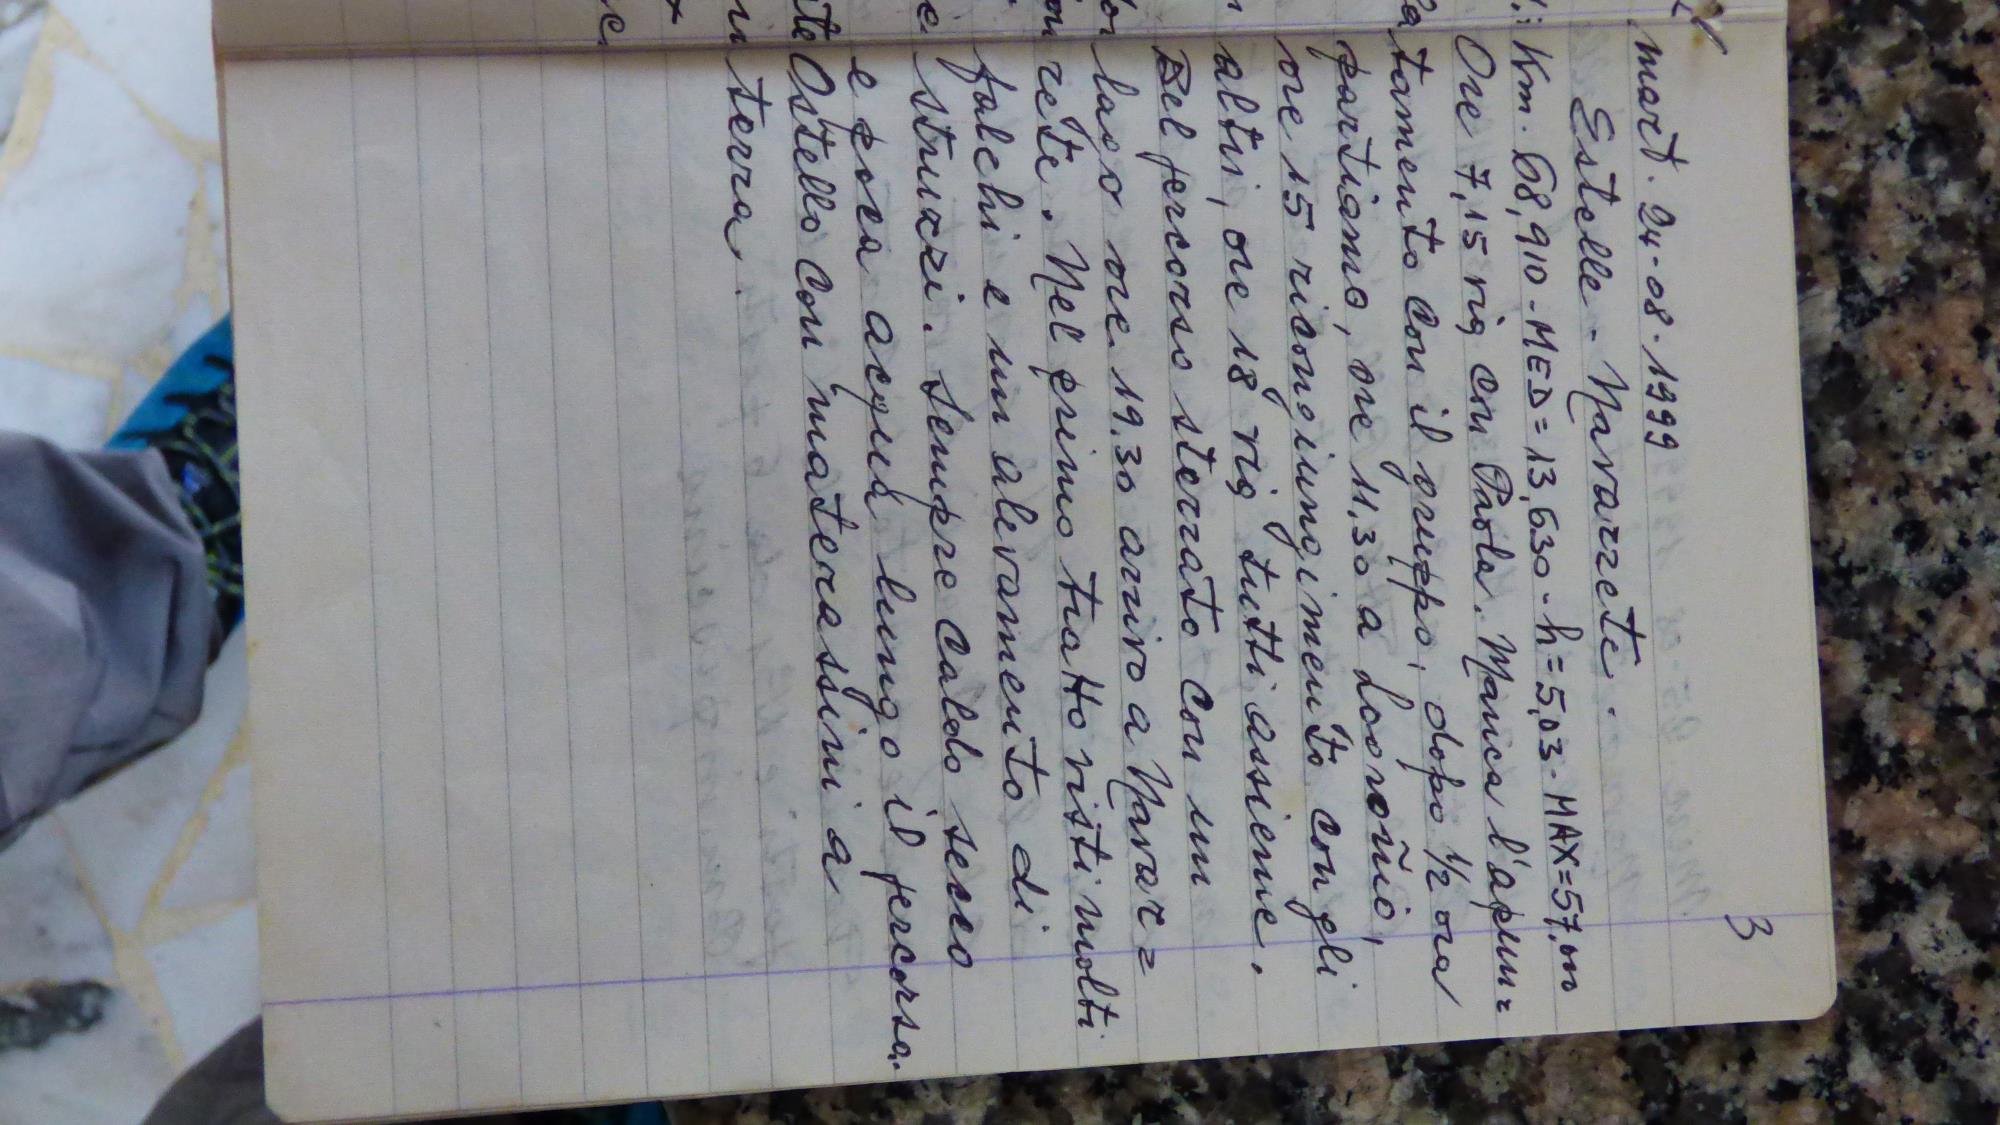 3
mart. 24-08-1999
Estelle - Navarrete.
Km. 68,910 - MED=13,630 - h=5,03 - MAX=57,00
Ore 7,15 rig con Paola. Manca l'apun=
tamento con il gruppo, dopo 1/2 ora
partiamo, ore 11,30 a Logroño,
ore 15 ricongiungimento con gli
altri, ore 18 rig tutti assieme.
Bel percorso sterrato con un
lago ore 19,30 arrivo a Navar=
rete. Nel primo tratto visti molti
falchi e un alevamento di
struzzi. Sempre caldo secco
e poca acqua lungo il percorso.
Ostello con materassini a
terra.